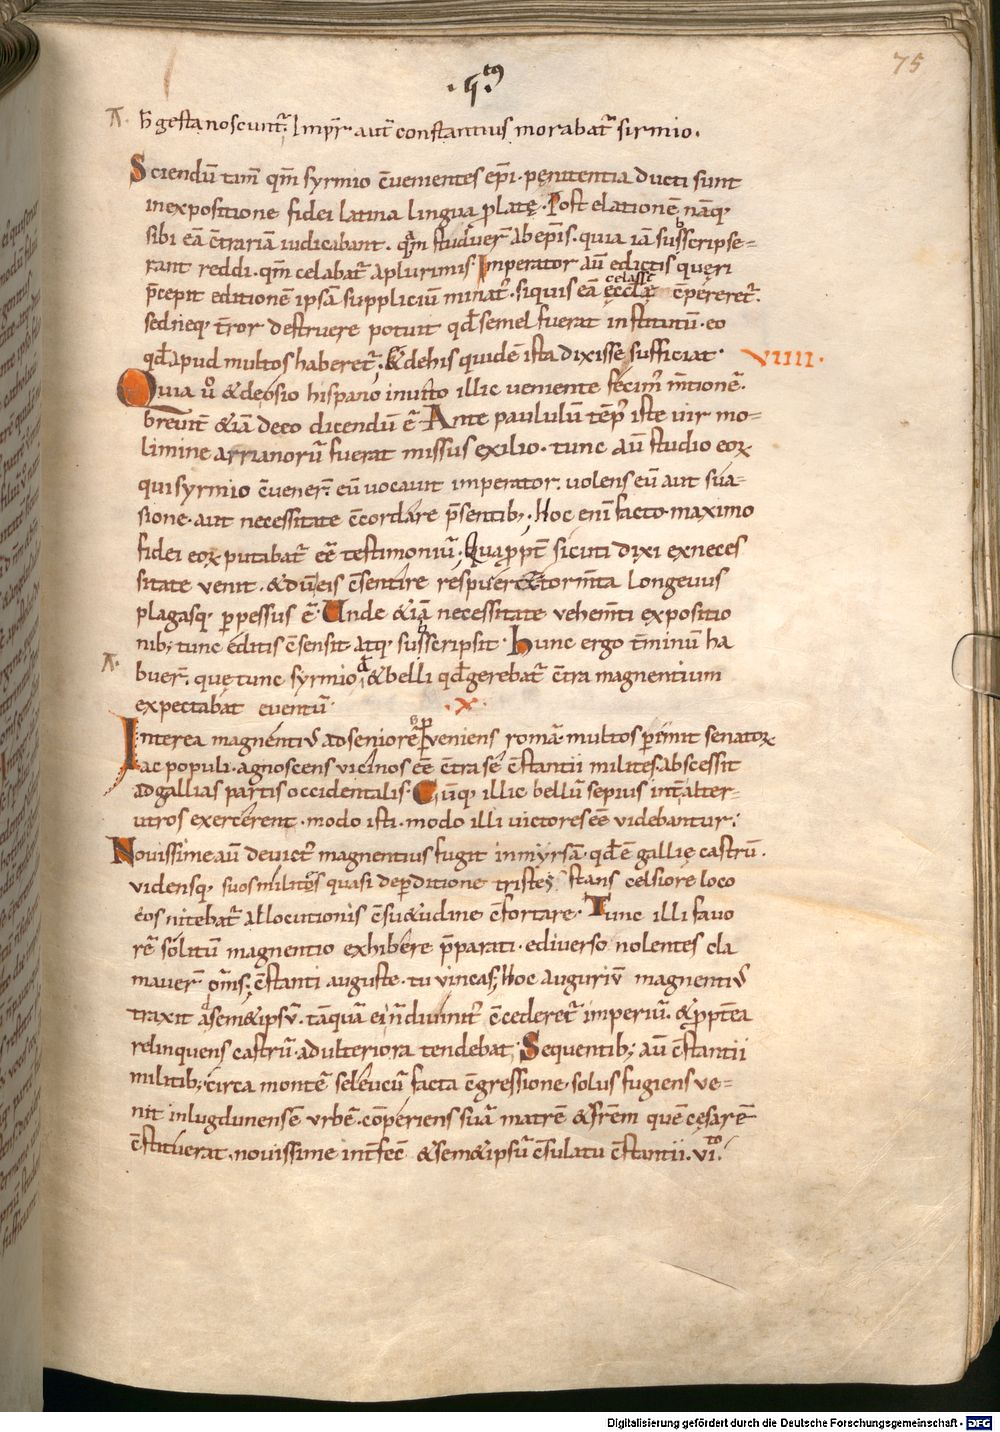 75
·ii·tus
A· h̄ gesta noscunt᷑. Imp̄r· aut̄ constantius morabat᷑ sirmio.
Sciendū tam̄ qm̄ syrmio c̄uenientes ep̄i· penitentia ducti sunt
in expositione fidei latina lingua p̄latę· Post elationē nāq;
sibi eā c̄trariā iudicabant. qr̄ā studuer̄ ab ep̄is· quia iā subscripse=
rant reddi· qm̄ celabat᷑ a plurimis· Imperator aū edictis quęri
p̄cepit editionē ipsā suppliciū minat᷑· siquis eā celasse ęcclę c̄pereret᷑.
sed neq; t̄ror destruere potuit qđ semel fuerat institutū· eo
qđ apud multos haberet᷑; & de his quidē ista dixisse sufficiat· VIIII·
Quia ů & de osio hispano inuito illic ueniente fecim᷒ m̄tionē·
breuit̄ & iā de eo dicendū ē· Ante paululū tēp᷒ iste uir mo=
limine arrianorū fuerat missus exilio· tunc aū studio eoꝝ
qui syrmio c̄uener̄· eū uocauit imperator· uolens eū aut sua=
sione· aut necessitate c̄cordare p̄sentib;· Hoc enī facto· maximo
fidei eoꝝ putabat᷑ eē testimoniū· Quapropt̄ sicuti dixi ex neces
sitate uenit· & dū eis c̄sentire respueret & torm̄ta longeuus
plagasq; perpessus ē· Unde & iā necessitate uehem̄ti expositio
nib; tunc editis c̄sensit· atq; subscripsit· Hunc ergo t̄minū ha
A· buer̄· quę tunc syrmio & belli qđ gerebat᷑ c̄tra magnentium
expectabat euentū· ·X·
Interea magnenti᷒ ad seniorē ueniens romā· multos peremit senatoꝝ
ac populi· agnoscens uicinos eē c̄tra se c̄stantii milites· abscessit
ad gallias partis occidentalis· Cūq; illic bellū sepius int̄ alter=
utros exercerent· modo isti· modo illi uictores eē uidebantur;
Nouissime aū deuict᷒ magnentius fugit in myrsā· qđ ē gallię castrū.
uidensq; suos milites quasi de perditione tristes stans celsiore loco
eos nitebat᷑ allocutionis c̄su&udine c̄fortare· Tunc illi fauo
rē solitū magnentio exhibere p̄parati· e diuerso nolentes cla
mauer̄ om̄s; c̄stanti auguste· tu uincas; Hoc auguriū magnenti᷒
traxit ad sem&ipsū· tāquā ei n̄ diuinit᷒ c̄cederet᷑ imperiū· & propt̄ea
relinquens castrū· ad ulteriora tendebat; Sequentib; aū c̄stantii
militib; circa montē seleucū facta c̄gressione· solus fugiens ue=
nit in lugdunensē urbē· cōperiens suā matrē & fr̄em quē cęsarē
c̄stituerat· nouissime int̄fec̄ & sem&ipsū c̄sulatu c̄stantii· VI·to
Digitalisierung gefördert durch die Deutsche Forschungsgemeinschaft - DFG